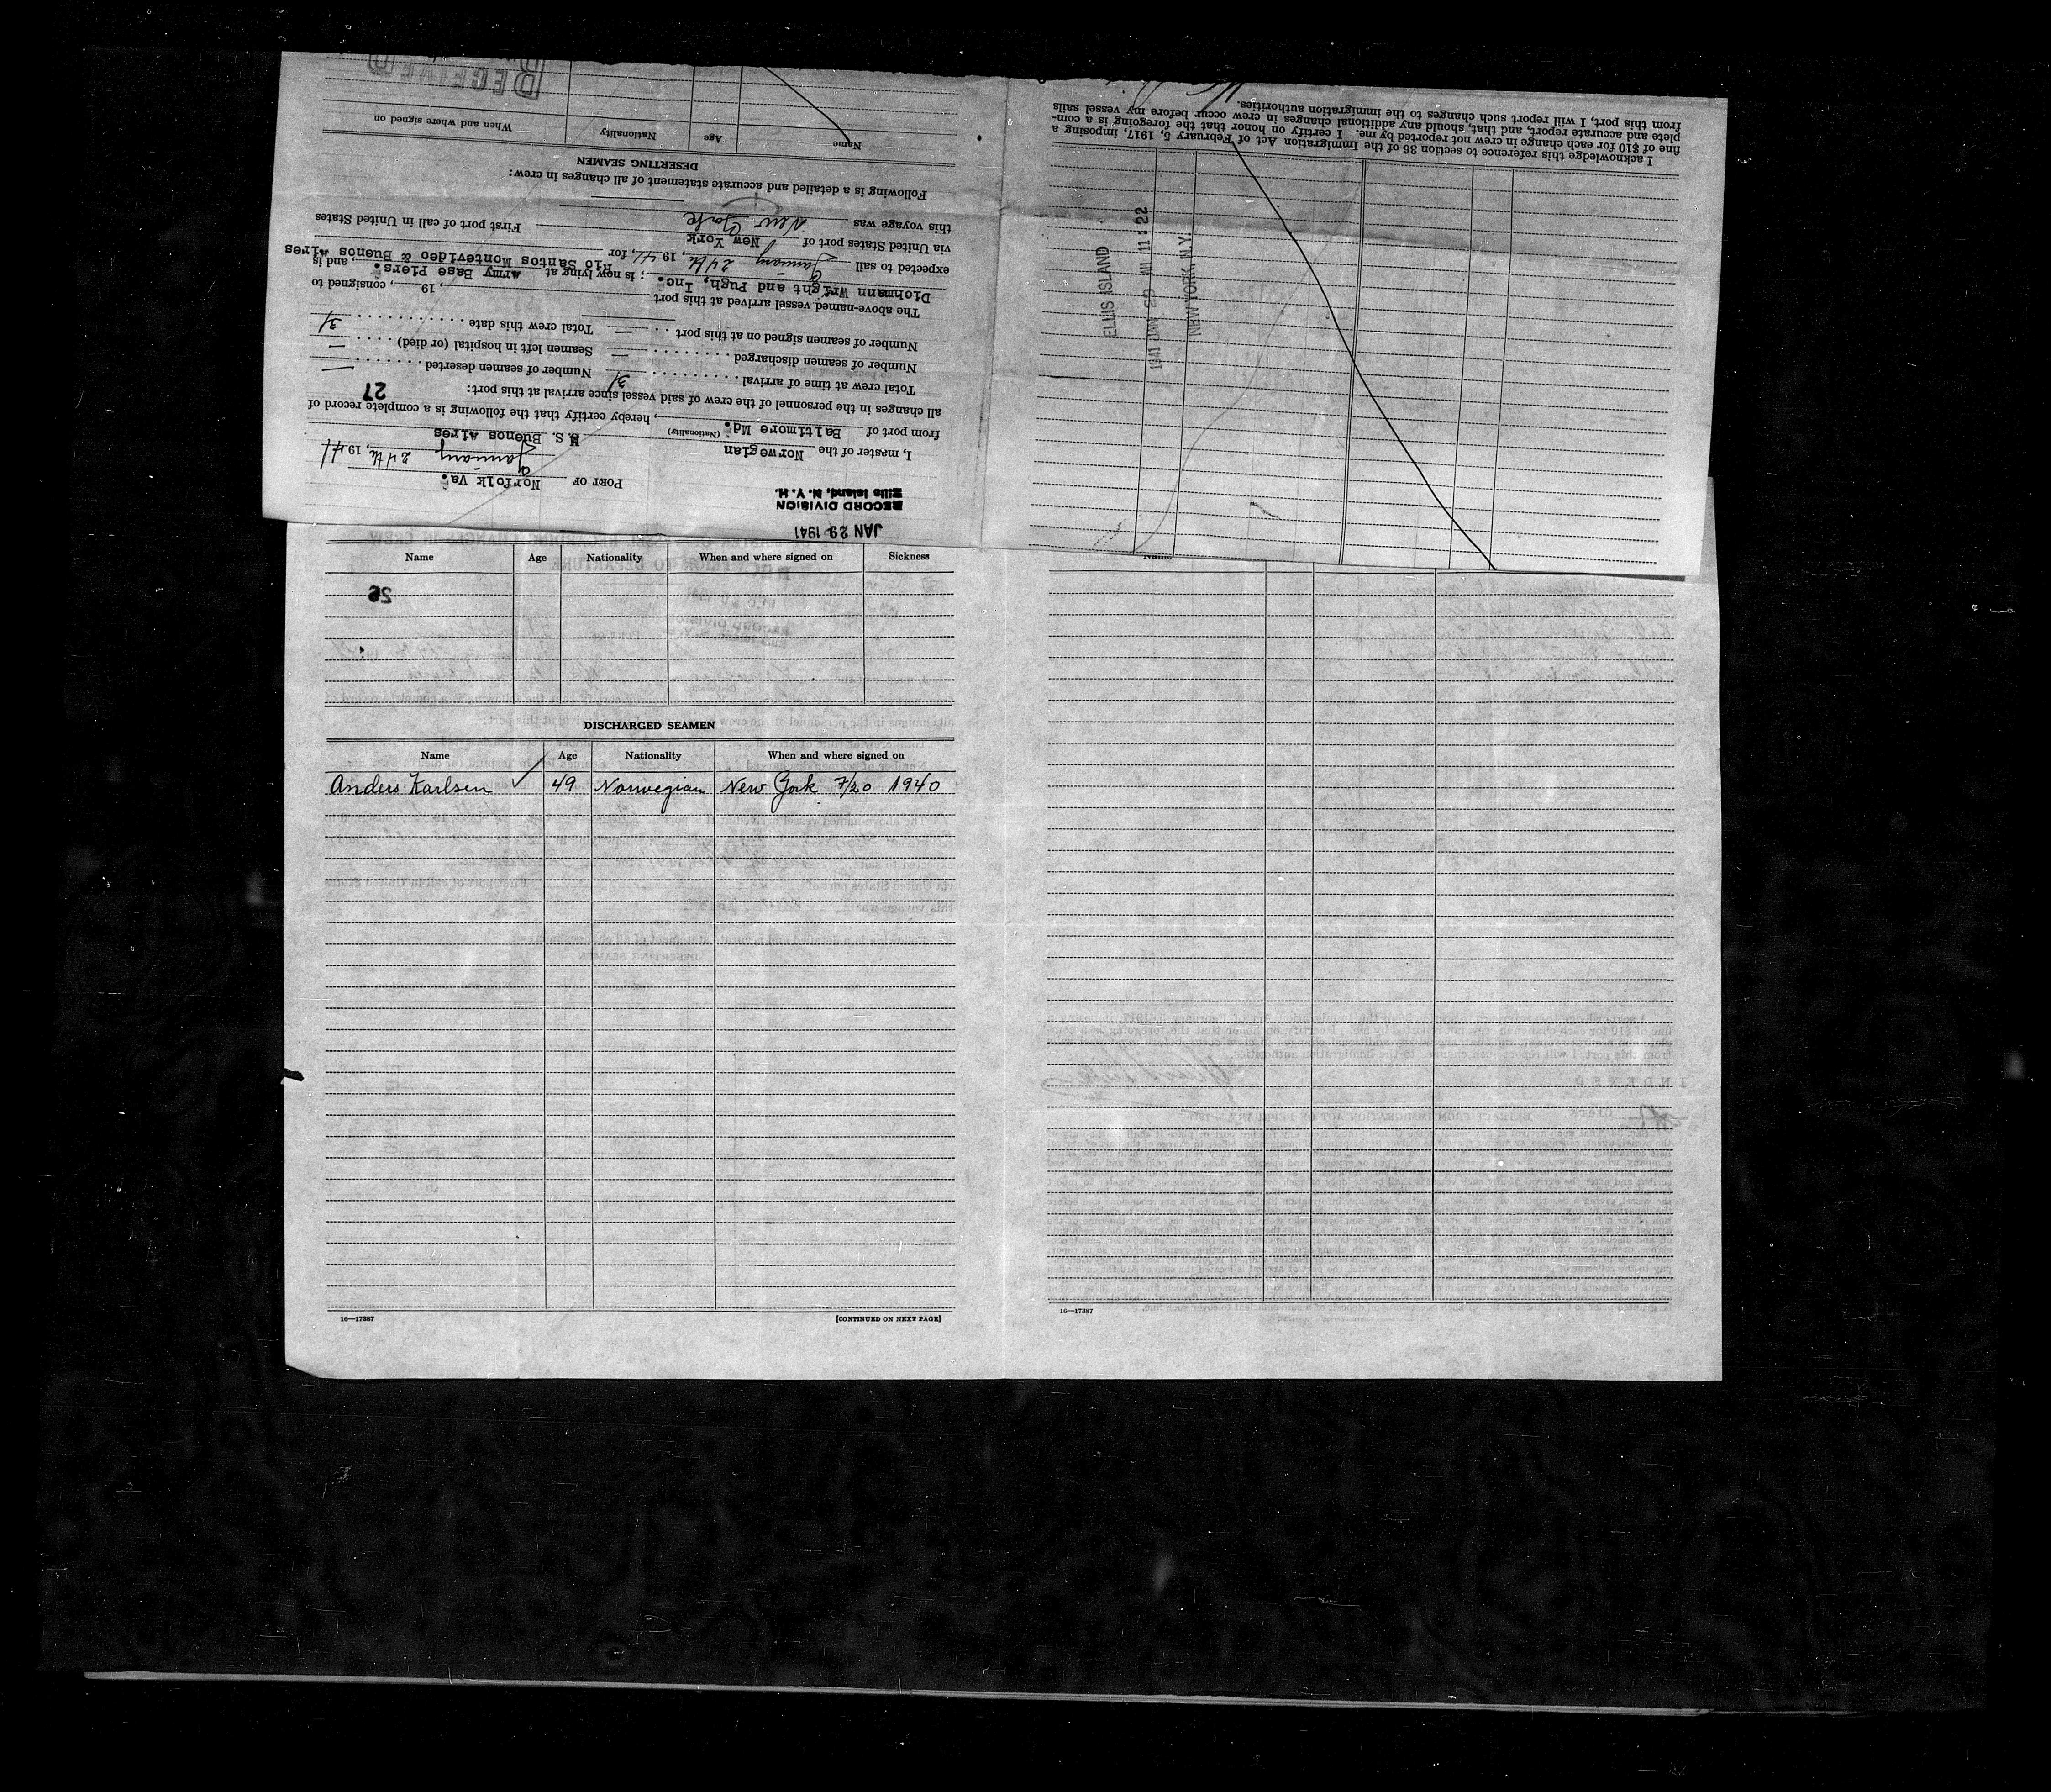 JAN 29 1941
RECORD DIVISION
Ellis Island, N. Y. H.
PORT OF Norfolk Va.
January 24th, 1941
I, master of the Norwegian M.S. Buenos Aires
(Nationality)
from port of Baltimore Md., hereby certify that the following is a complete record of
all changes in the personnel of the crew of said vessel since arrival at this port:
27
Total crew at time of arrival . . . . . . . . . 31 Number of seamen deserted . . . . . . . —
Number of seamen discharged . . . . . . . . — Seamen left in hospital (or died) . . . . —
Number of seamen signed on at this port . . — Total crew this date . . . . . . . . . . . . 31
The above-named vessel arrived at this port , 19 , consigned to
Dichmann Wright and Pugh, Inc. ; is now lying at Army Base Piers. , and is
expected to sail January 24th , 1941, for Rio Santos Montevideo & Buenos Aires
via United States port of New York First port of call in United States
this voyage was New York
Following is a detailed and accurate statement of all changes in crew:
DESERTING SEAMEN
Name Age Nationality When and where signed on
RECEIVED
ELLIS ISLAND
1941 JAN 29 AM 11:22
NEW YORK, N.Y.
I acknowledge this reference to section 36 of the Immigration Act of February 5, 1917, imposing a
fine of $10 for each change in crew not reported by me. I certify on honor that the foregoing is a com-
plete and accurate report, and that, should any additional changes in crew occur before my vessel sails
from this port, I will report such changes to the immigration authorities.
Name Age Nationality When and where signed on Sickness
26
DISCHARGED SEAMEN
Name Age Nationality When and where signed on
Anders Karlsen ✓ 49 Norwegian New York 7/20 1940
16—17387 [CONTINUED ON NEXT PAGE]
Name
16—17387